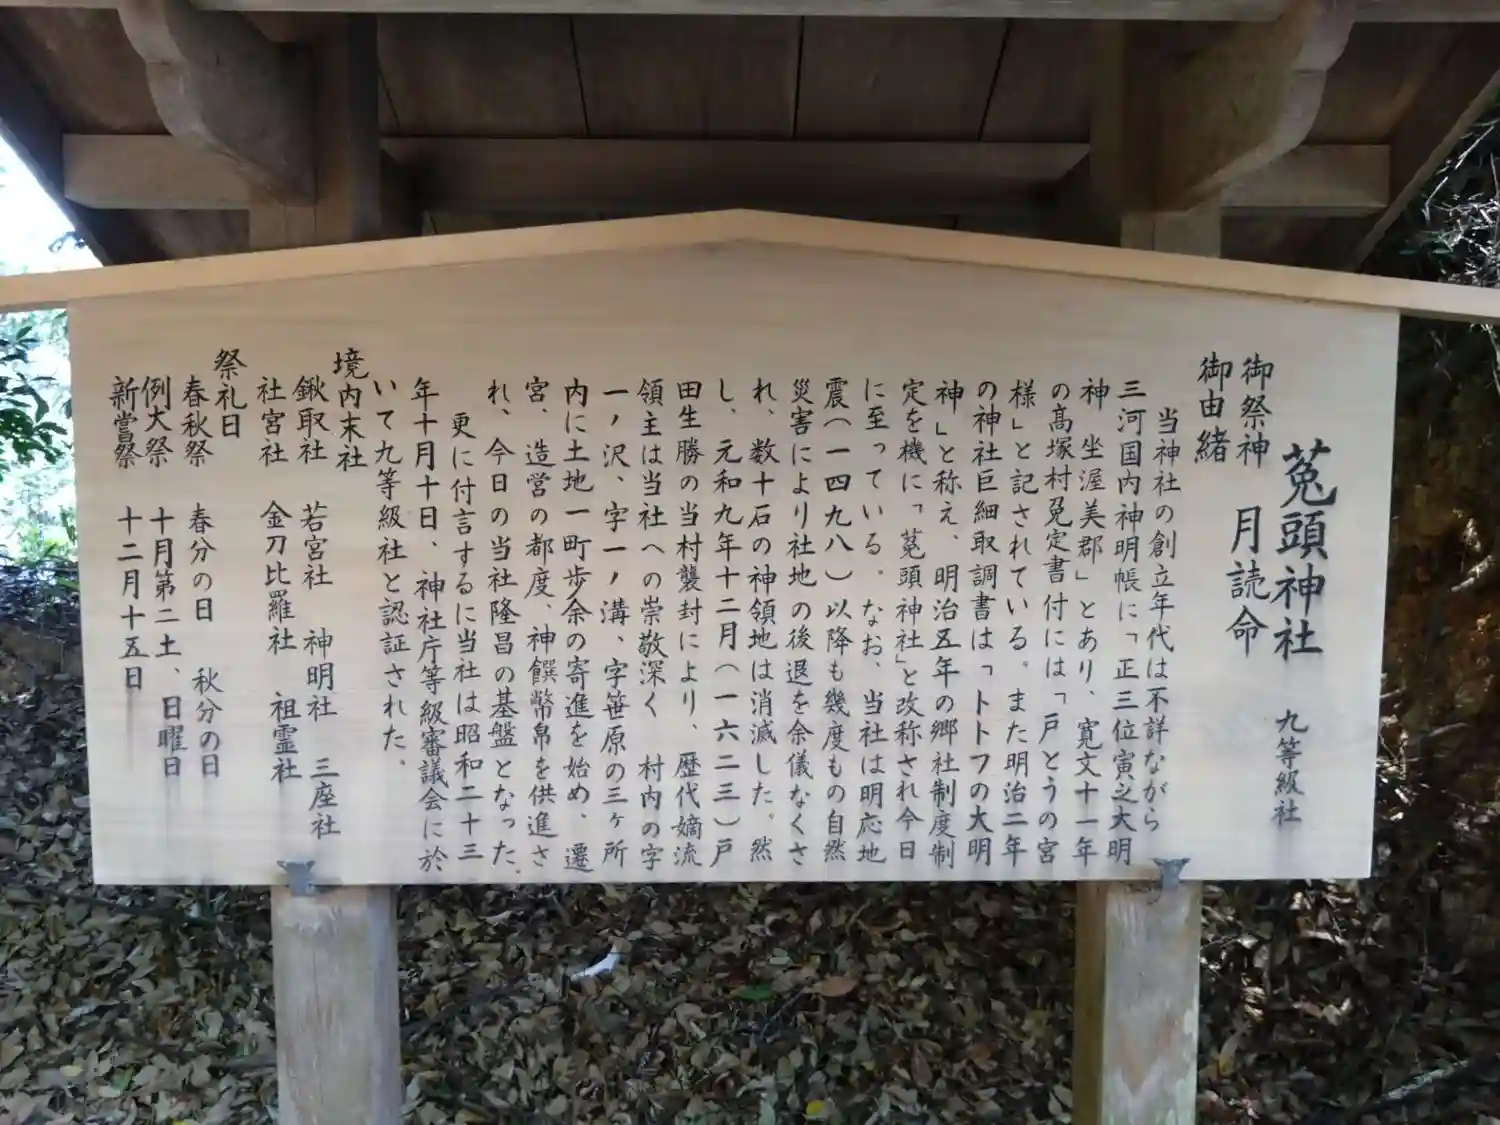 菟頭神社 九等級社
御祭神 月読命
御由緒
当神社の創立年代は不詳ながら
三河国内神明帳に「正三位寅之大明
神 坐渥美郡」とあり、寛文十一年
の髙塚村免定書付には「戸とうの宮
様」と記されている。また明治二年
の神社巨細取調書は「トトフの大明
神」と称え、明治五年の郷社制度制
定を機に「菟頭神社」と改称され今日
に至っている。なお、当社は明応地
震(一四九八)以降も幾度もの自然
災害により社地の後退を余儀なくさ
れ、数十石の神領地は消滅した。然
し、元和九年十二月(一六二三)戸
田生勝の当村襲封により、歴代嫡流
領主は当社への崇敬深く 村内の字
一ノ沢、字一ノ溝、字笹原の三ヶ所
内に土地一町歩余の寄進を始め、遷
宮、造営の都度、神饌幣帛を供進さ
れ、今日の当社隆昌の基盤となった。
更に付言するに当社は昭和二十三
年十月十日、神社庁等級審議会に於
いて九等級社と認証された。
境内末社
鍬取社 若宮社 神明社 三座社
社宮社 金刀比羅社 祖霊社
祭礼日
春秋祭 春分の日 秋分の日
例大祭 十月第二土、日曜日
新嘗祭 十二月十五日